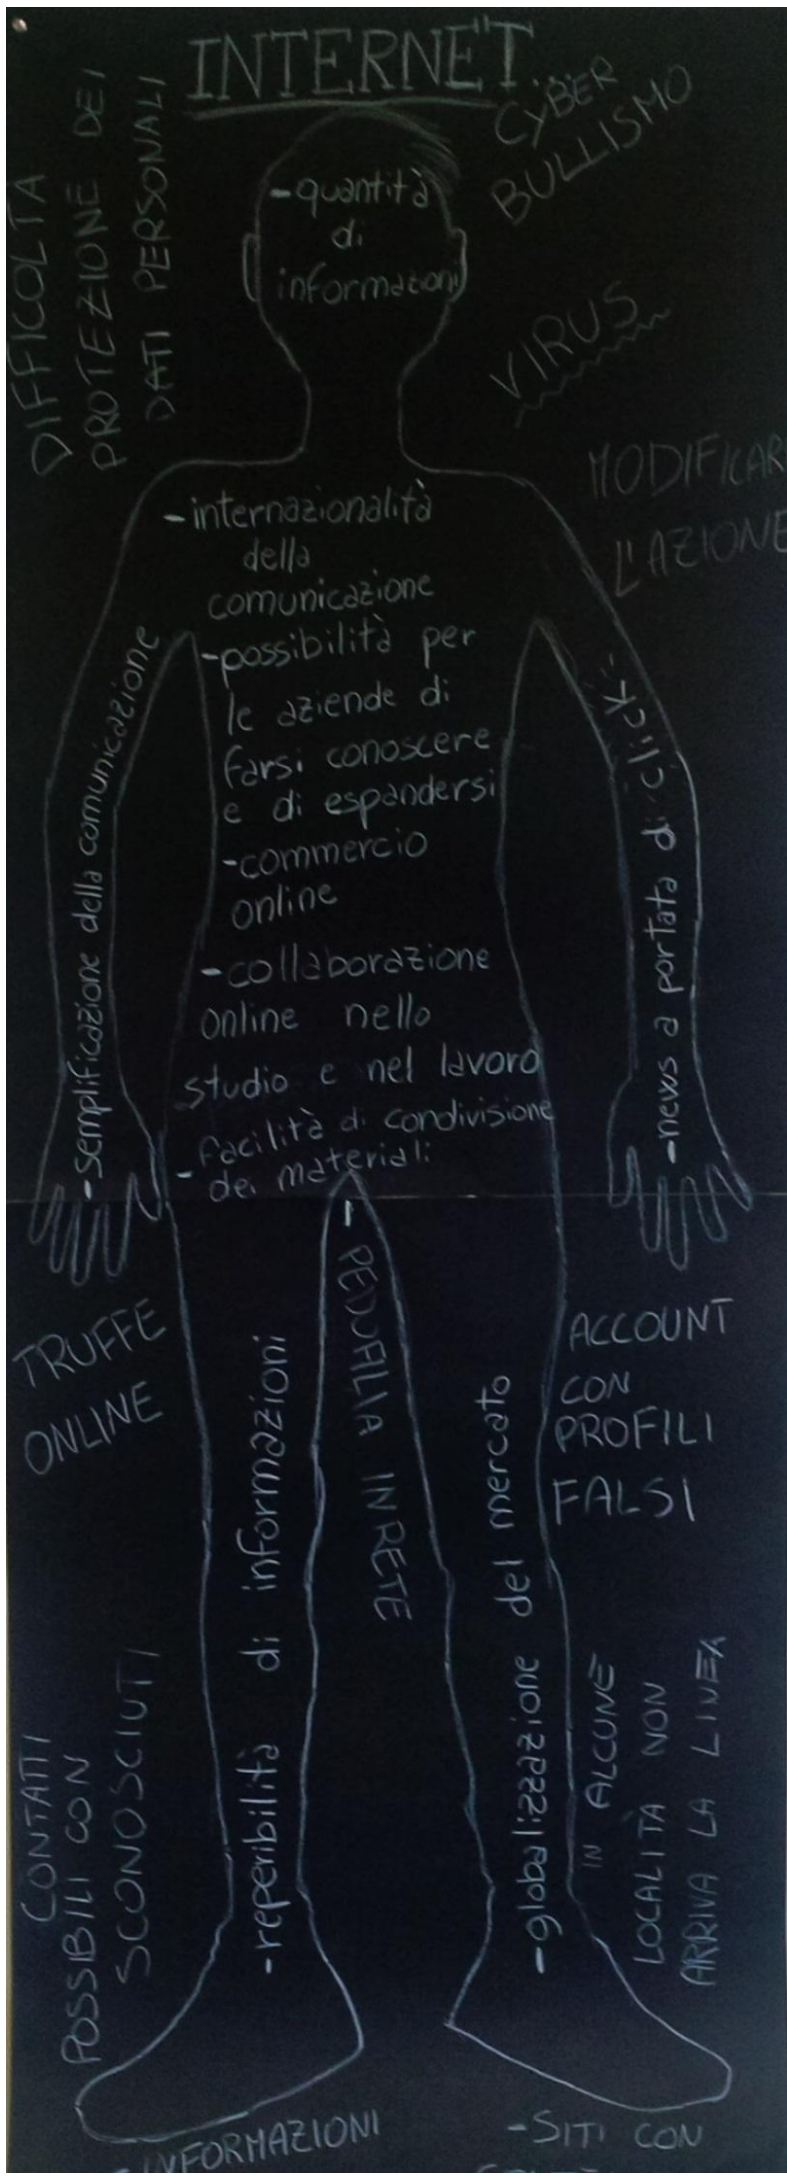 INTERNET...
CYBER
BULLISMO
DIFFICOLTÀ
PROTEZIONE DEI
DATI PERSONALI
-quantità
di
informazioni
VIRUS
MODIFICAR
L'AZIONE
-internazionalità
della
comunicazione
-possibilità per
le aziende di
farsi conoscere
e di espandersi
-commercio
online
-collaborazione
online nello
studio e nel lavoro
-facilità di condivisione
dei materiali
-semplificazione della comunicazione
-news a portata di click-
TRUFFE
ONLINE
- PEDOFILIA IN RETE
ACCOUNT
CON
PROFILI
FALSI
-reperibilità di informazioni
-globalizzazione del mercato
CONTATTI
POSSIBILI CON
SCONOSCIUTI
IN ALCUNE
LOCALITÀ NON
ARRIVA LA LINEA
-INFORMAZIONI
-SITI CON